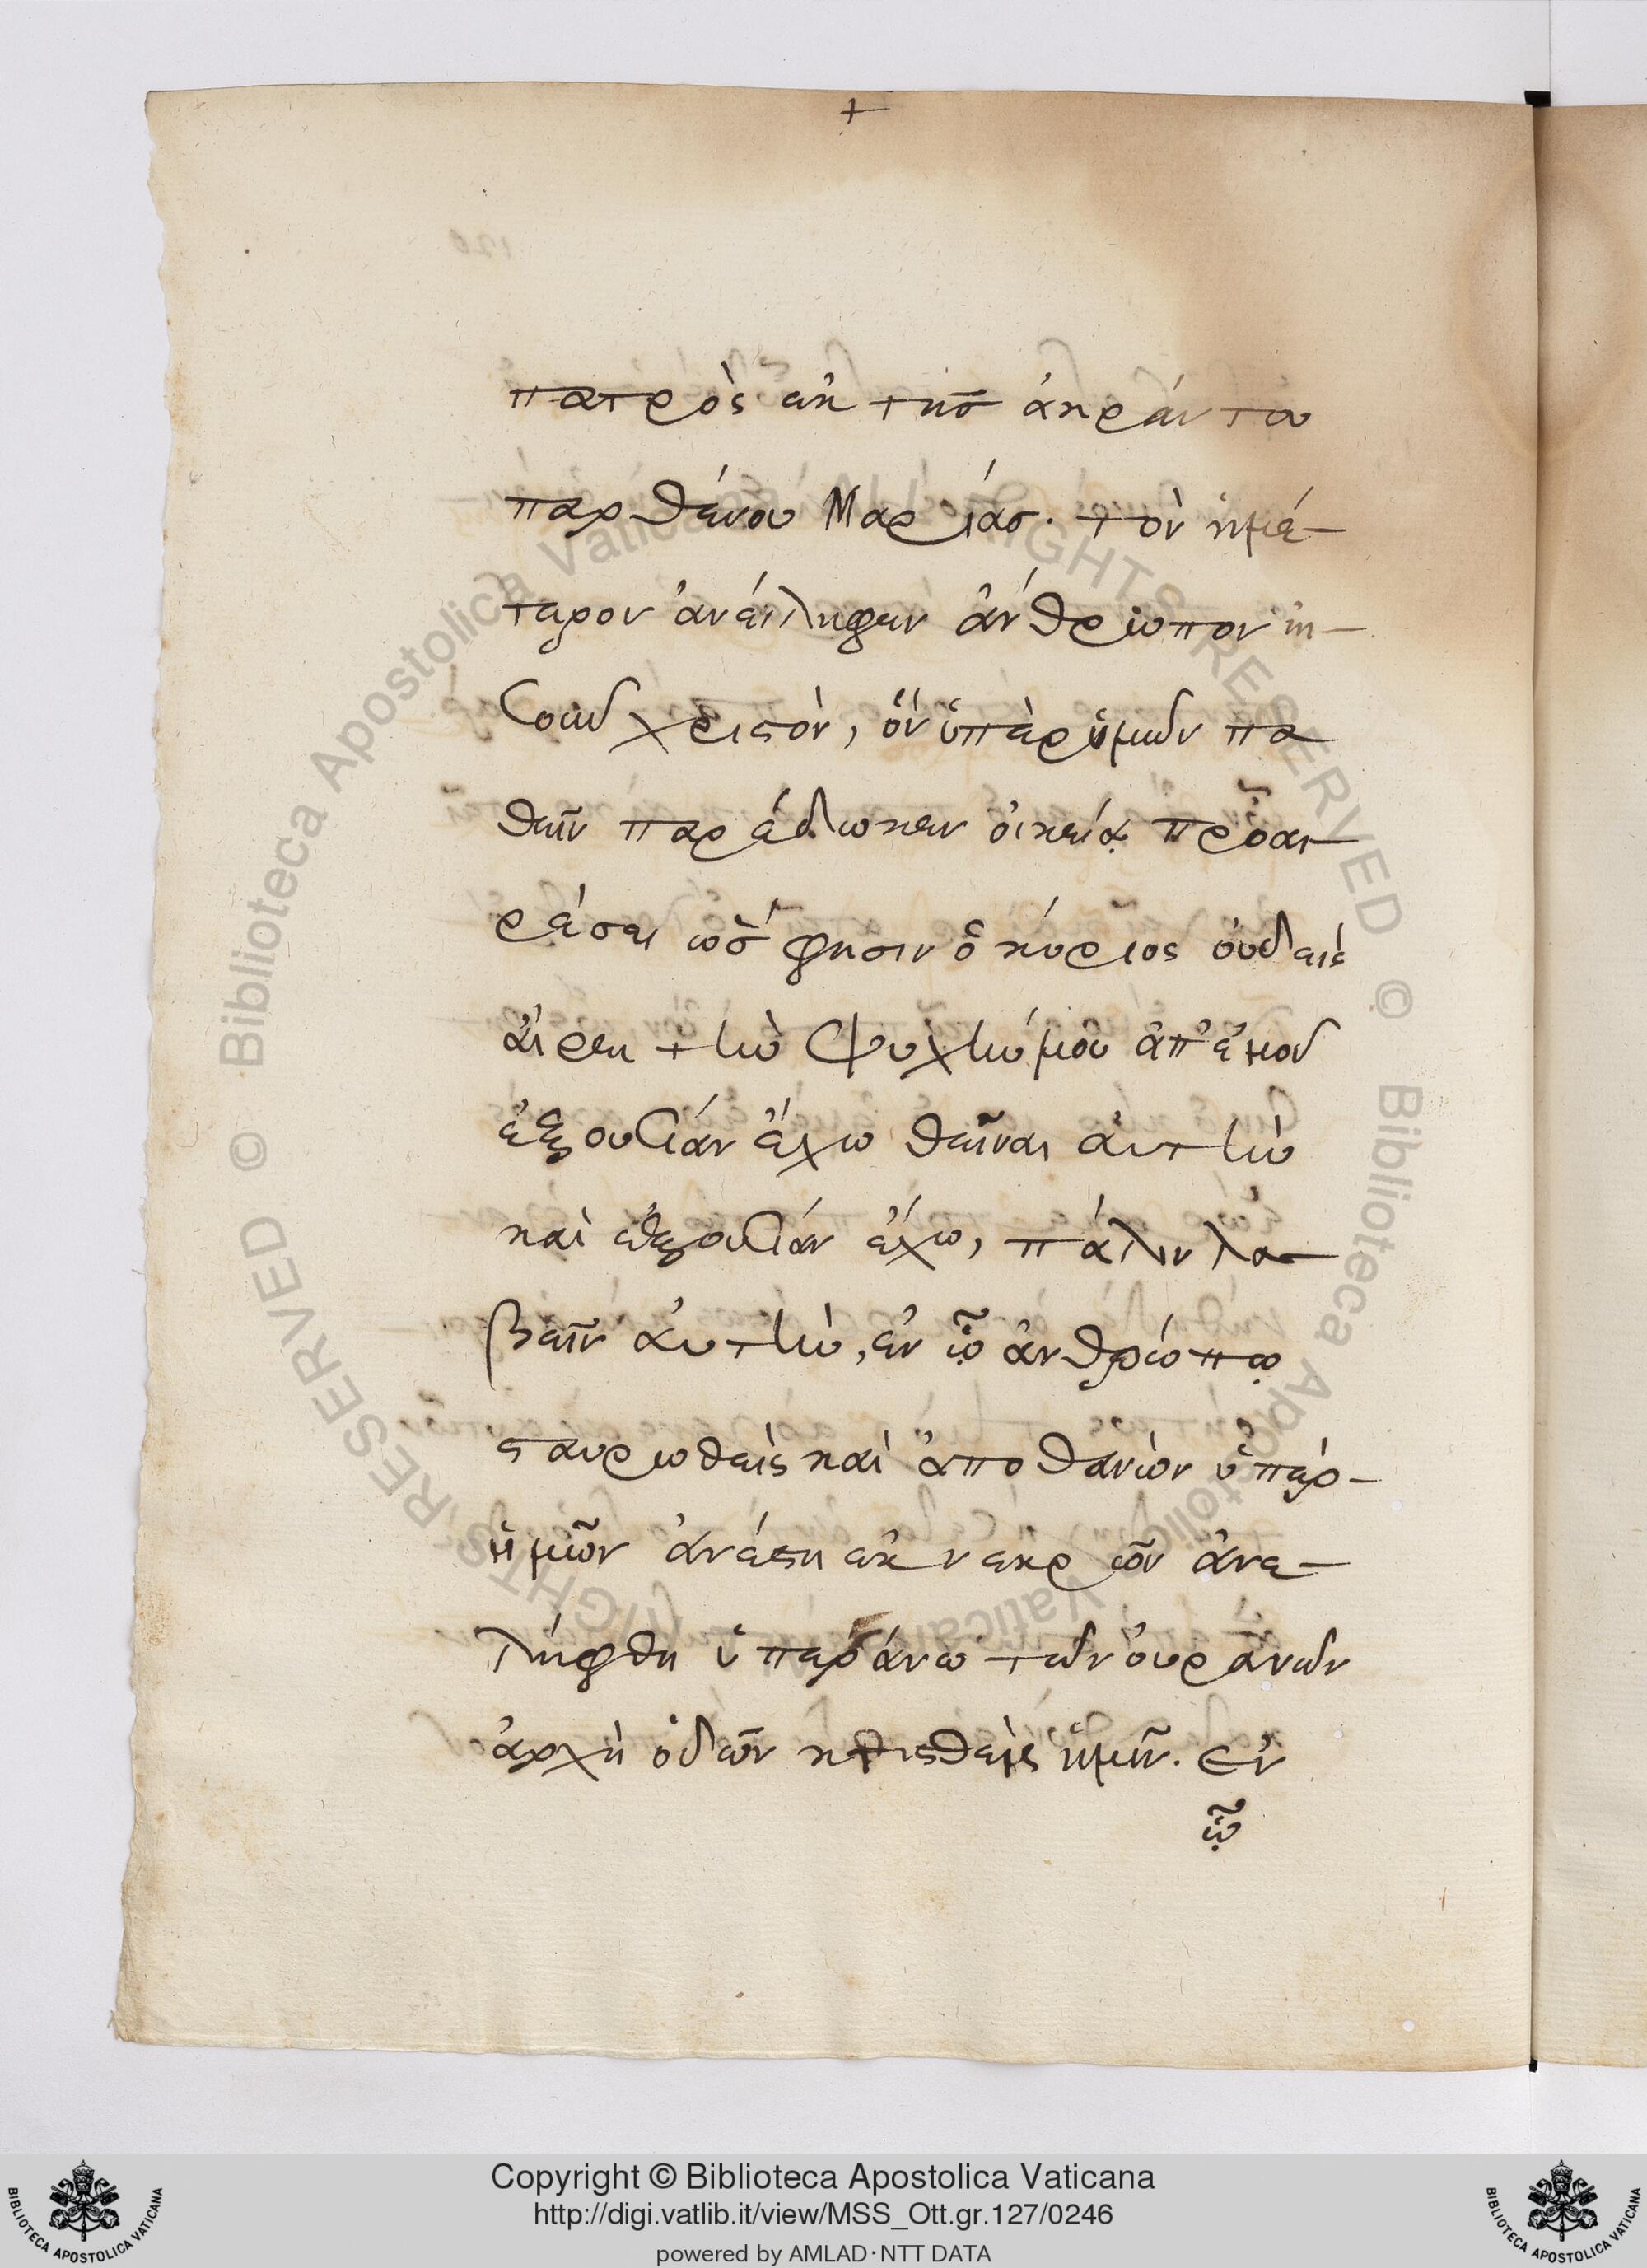 +
πατρὸς ἐκ τῆσ ἀχράντου
παρθένου Μαρίασ. τὸν ἡμέ-
τερον ἀνείληφεν ἄνθρωπον ἰη-
σοῦν χριστὸν, ὃν ὑπὲρ ἡμῶν πα
θεῖν παρέδωκεν οἰκείᾳ προαι-
ρέσει ὥσ φησιν ὁ κύριος οὐδεὶς
αἴρει τὴν ψυχήν μου ἀπ' ἐμοῦ
ἐξουσίαν ἔχω θεῖναι αὐτὴν
καὶ ἐξουσίαν ἔχω, πάλιν λα-
βεῖν αὐτὴν, ἐν ᾧ ἀνθρώπῳ
σταυρωθεὶς καὶ ἀποθανὼν ὑπὲρ-
ἡμῶν ἀνέστη ἐκ νεκρῶν ἀνε-
λήφθη ὑπεράνω τῶν οὐρανῶν
ἀρχὴ ὁδῶν κτισθεὶς ἡμῖν. ἐν
ᾧ
Copyright © Biblioteca Apostolica Vaticana
http://digi.vatlib.it/view/MSS_Ott.gr.127/0246
powered by AMLAD·NTT DATA
BIBLIOTECA APOSTOLICA VATICANA
BIBLIOTECA APOSTOLICA VATICANA
Biblioteca Apostolica Vaticana © ALL RIGHTS RESERVED © Biblioteca Apostolica Vaticana © ALL RIGHTS RESERVED ©